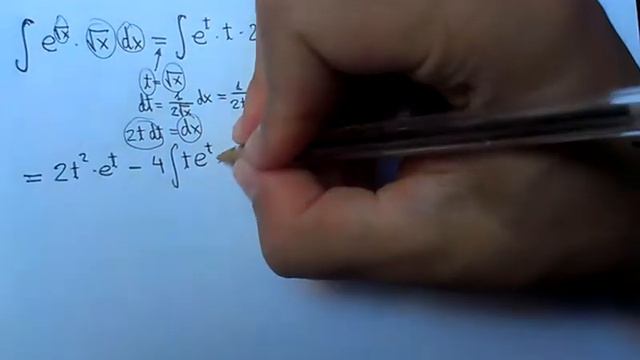 ∫ e^√x · √x dx = ∫ e^t · t · 2
t = √x
dt = 1/(2√x) dx = 1/(2t
2t dt = dx
= 2t² · e^t − 4 ∫ t e^t